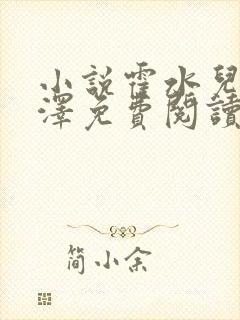 小說霍水兒
澤免費閱讀
簡小余